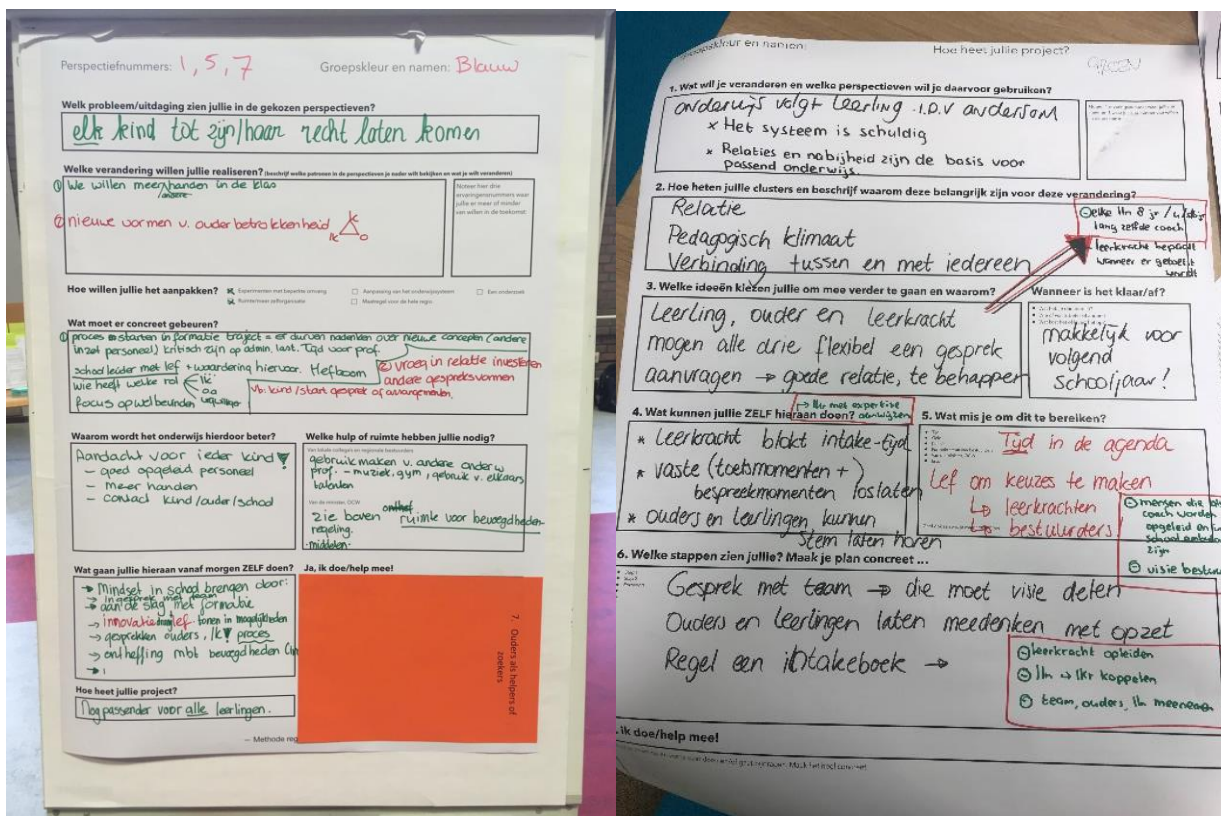 Perspectiefnummers: 1, 5, 7
Groepskleur en namen: Blauw
Welk probleem/uitdaging zien jullie in de gekozen perspectieven?
elk kind tot zijn/haar recht laten komen
Welke verandering willen jullie realiseren? (beschrijf welke patronen in de perspectieven je ouder wilt bekijken en wat je wilt veranderen)
① We willen meer/andere handen in de klas
② nieuwe vormen v. ouderbetrokkenheid
K
lk O
Noteer hier drie
ervaringsnummers waar
jullie er meer of minder
van willen in de toekomst
Hoe willen jullie het aanpakken?
Experimenten met beperkte omvang
Aanpassing van het onderwijssysteem
Een onderzoek
Ruimte/meer zelforganisatie
Maatregel voor de hele regio
Wat moet er concreet gebeuren?
① proces starten informatie traject = er durven nadenken over nieuwe concepten (andere
inzet personeel) kritisch zijn op admin. last. Tijd voor prof.
schoolleider met lef + waardering hiervoor. Hefboom
wie heeft welke rol
focus op welbevinden
② vroeg in relatie investeren
andere gespreksvormen
vb. kind/start gesprek of arrangementen.
Waarom wordt het onderwijs hierdoor beter?
Aandacht voor ieder kind!
- goed opgeleid personeel
- meer handen
- contact kind/ouder/school
Welke hulp of ruimte hebben jullie nodig?
Van lokale collega's en regionale bestuurders
gebruik maken v. andere onderw
prof. - muziek, gym, gebruik v. elkaars
talenten
Van de minister, OCW
zie boven
onthef
ruimte voor bevoegdheden-
regeling.
-middelen-
Wat gaan jullie hieraan vanaf morgen ZELF doen?
→ Mindset in school brengen door:
→ in gesprek met team
→ aan de slag met formatie
→ innovatie lef tonen in mogelijkheden
→ gesprekken ouders, lk! proces
→ ontheffing mbt bevoegdheden
Ja, ik doe/help mee!
7. Ouders als helpers of
zoekers
Hoe heet jullie project?
Nog passender voor alle leerlingen.
— Methode reg
Groepskleur en namen:
Hoe heet jullie project?
GROEN
1. Wat wil je veranderen en welke perspectieven wil je daarvoor gebruiken?
onderwijs volgt leerling i.p.v andersom
x Het systeem is schuldig
x Relaties en nabijheid zijn de basis voor
passend onderwijs.
2. Hoe heten jullie clusters en beschrijf waarom deze belangrijk zijn voor deze verandering?
Relatie
Pedagogisch klimaat
Verbinding tussen en met iedereen
elke lln 8 jr
lang zelfde coach
leerkracht bepaalt
wanneer er getoetst
wordt
3. Welke ideeën kiezen jullie om mee verder te gaan en waarom?
Leerling, ouder en leerkracht
mogen alle drie flexibel een gesprek
aanvragen → goede relatie, te behappen
Wanneer is het klaar/af?
makkelijk voor
volgend
schooljaar!
4. Wat kunnen jullie ZELF hieraan doen?
→ lkr met expertise
aanwijzen
* Leerkracht blokt intake-tijd
* vaste (toetsmomenten +)
bespreekmomenten loslaten
* ouders en leerlingen kunnen
stem laten horen
5. Wat mis je om dit te bereiken?
Tijd in de agenda
Lef om keuzes te maken
↳ leerkrachten
↳ bestuurders
mensen die
coach worden
opgeleid en
zijn
visie
6. Welke stappen zien jullie? Maak je plan concreet ...
Gesprek met team → die moet visie delen
Ouders en leerlingen laten meedenken met opzet
Regel een intakeboek →
leerkracht opleiden
lln → lkr koppelen
team, ouders, lln meenemen
ik doe/help mee!